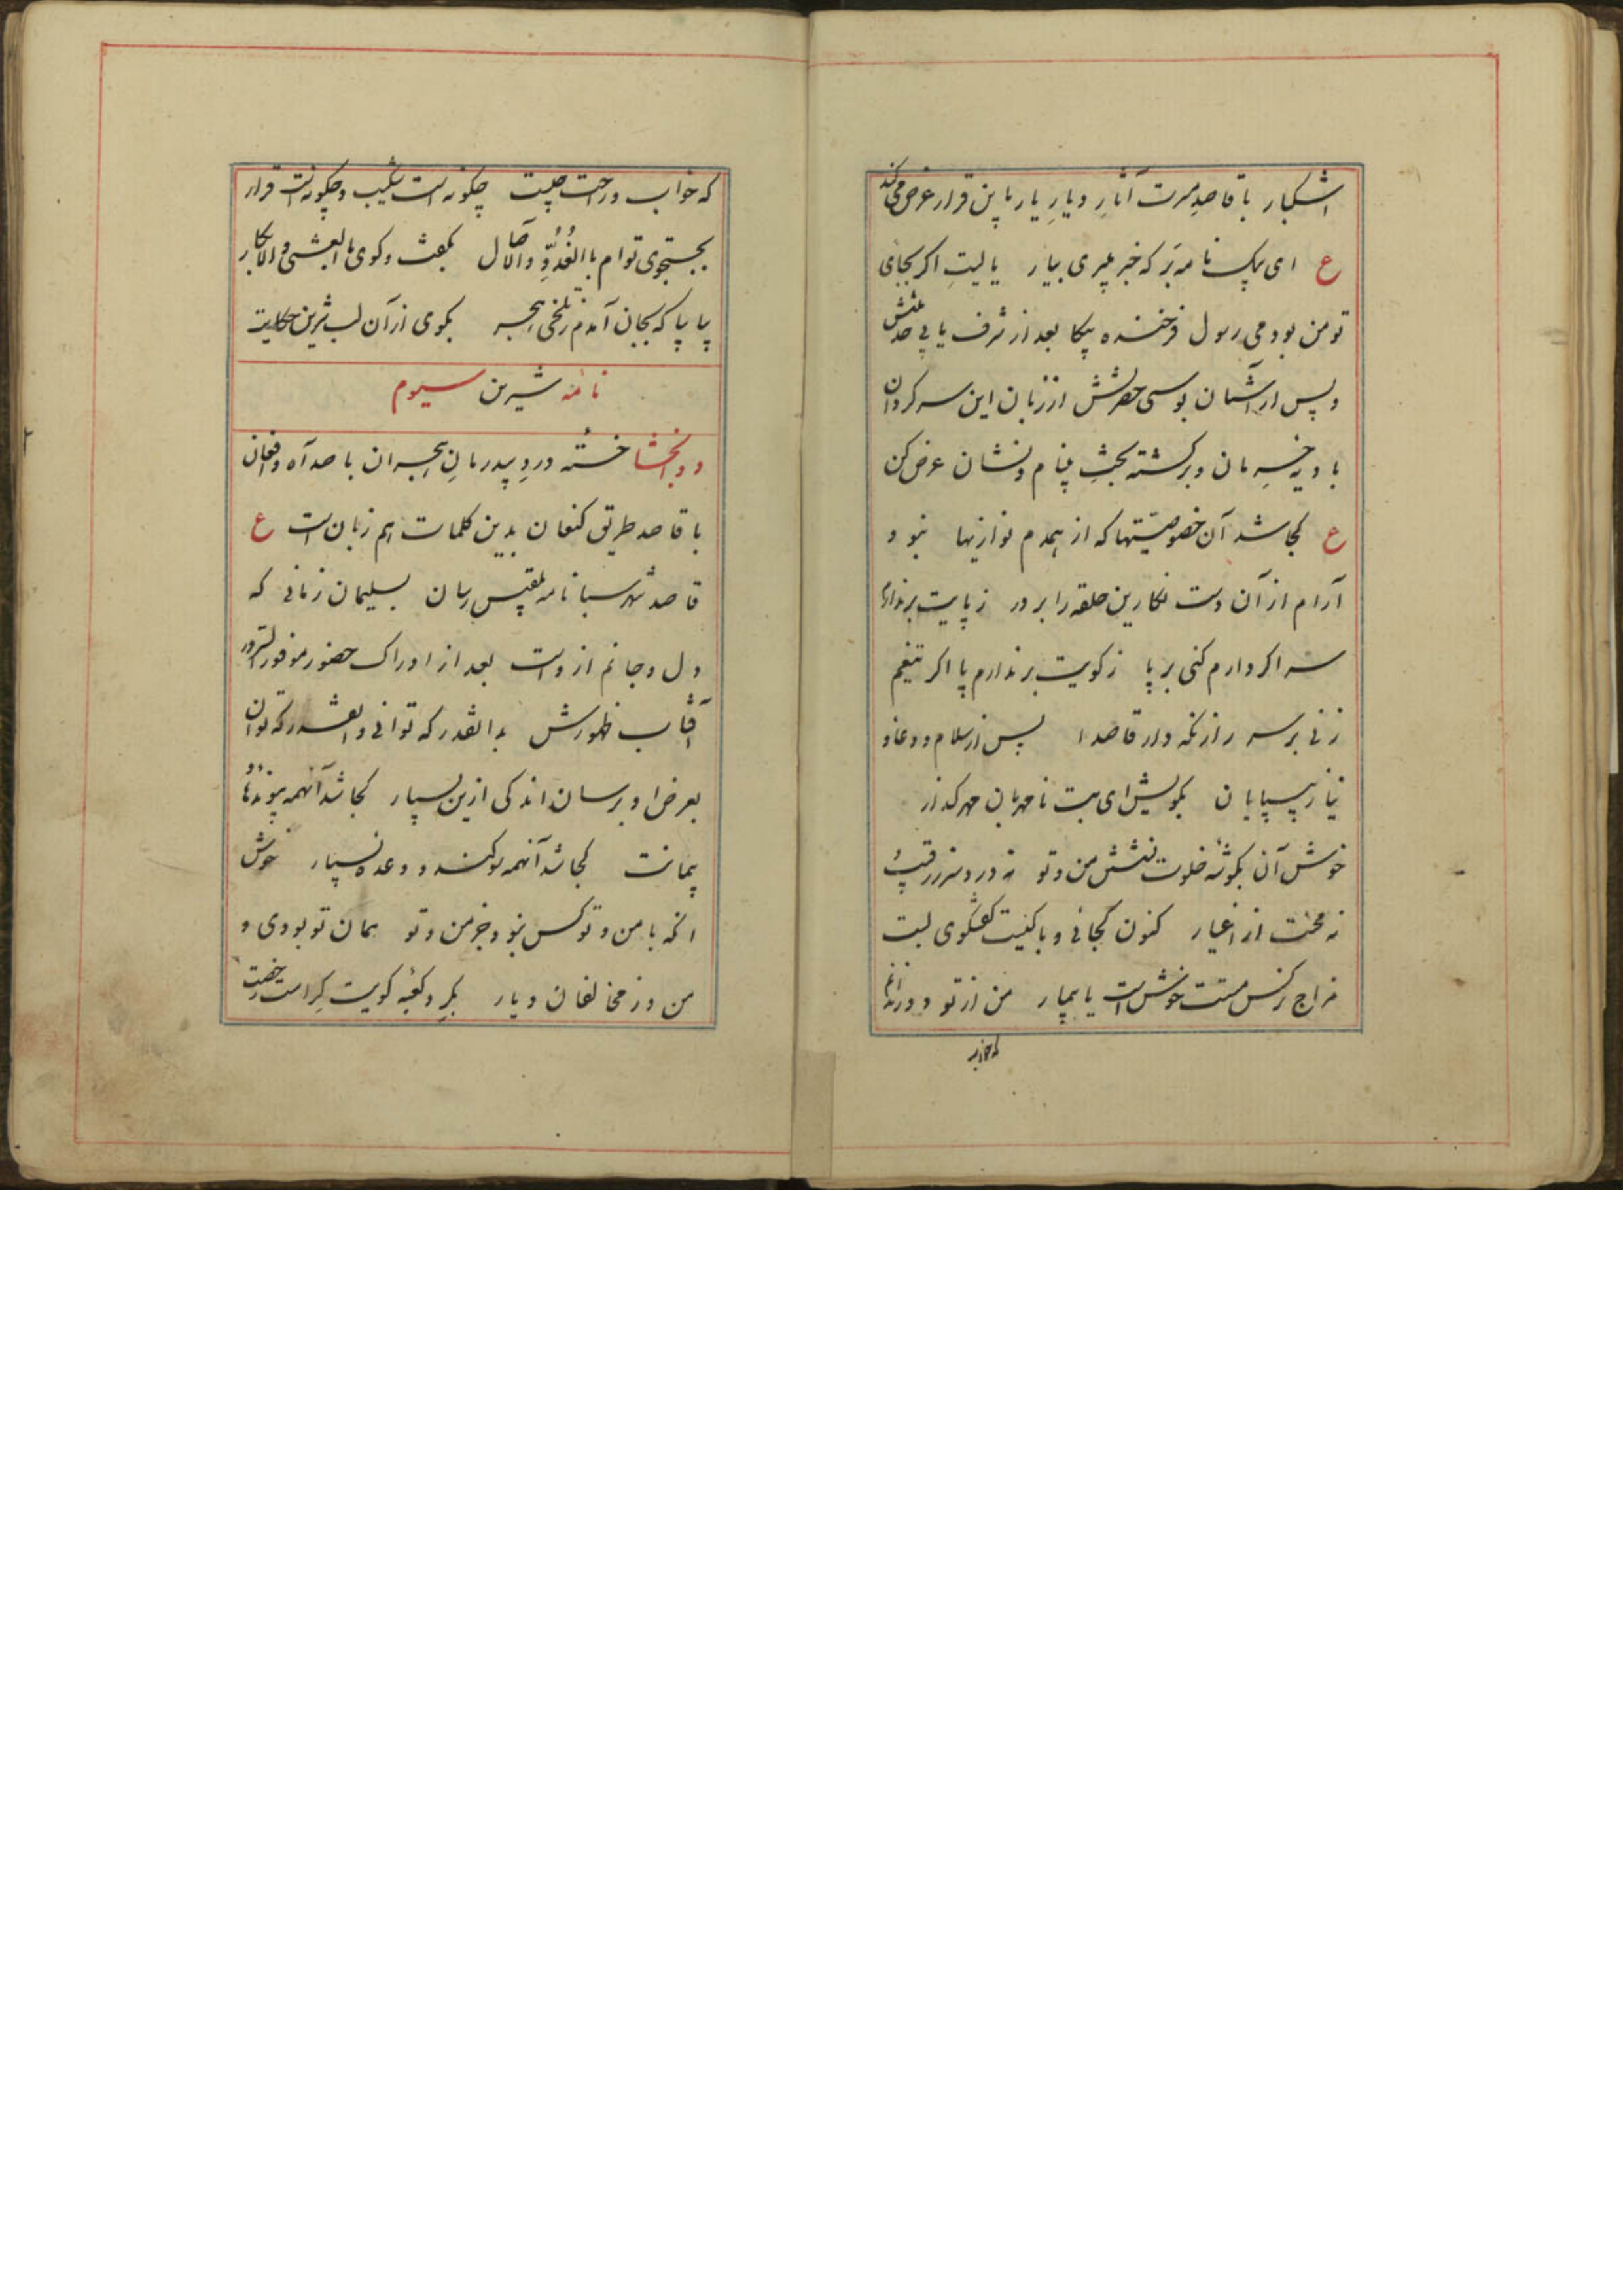 اشکبار با قاصدِ مسرت آثارِ دیارِ یار باین قرار عرض می کند
ع ای پیک نامه بَر که خبر میبری بیار یا لیتِ اگر بجای
تو من بودمی رسول فرخنده پیکا بعد از شرف یابی خدمتش
و پس از آستان بوسی حضرتش از زبان این سرکردان
بادیه حرمان و برکشته بختِ بی نام و نشان عرض کن
ع کجا شد آن خصوصیّتها که از همدم نوازیها نبود
آرام از آن دست نکارین حلقه را بر در ز پایت برندارم
سر اکر دارم کنی بر پا ز کویت برندارم پا اکر تیغم
زنی بر سر راز نکه دار قاصدا پس از سلام و دعا و
نیاز بیپایان بکویش ای بت نامهربان مهرکذار
خوش آن بکوشهٔ خلوت نشستن من و تو نه درد سر ز رقیب
نه محنت از اغیار کنون کجائی و با کیت کفتکوی لبت
مزاج نرکس مستت خوش است یا بیمار من از تو دور ندانم
که خواب
که خواب و راحت چیست چکونه است شکیب و چکونه است قرار
بجستجوی توام باالغُدُوِّ والآصال بکفت و کوی تو باالعشی والابکار
بیا بیا که بجان آمدم ز تلخی هجر بکوی از آن لب شیرین حکایت
نامهٔ شیرین سیوم
دو انخشا خستهٔ دردِ بیدرمانِ هجران با صد آه و افغان
با قاصد طریق کنعان بدین کلمات هم زبان است ع
قاصد شهر سبا نامه بلقیس رسان بسلیمان زمانی که
دل و جانم از وست بعد از ادراک حضور موفورالسرور
آفتاب ظهورش بدانقدر که توانی و انقدر که توان
بعرض او برسان اندکی ازین بسیار کجا شد آنهمه پیوندها و
پیمانت کجا شد آنهمه سوکند و وعده بسیار خوش
انکه با من و تو کس نبود جز من و تو همان تو بودی و
من وز مخالفان دیار بکردِ کعبهٔ کویت کِرا است رخصت